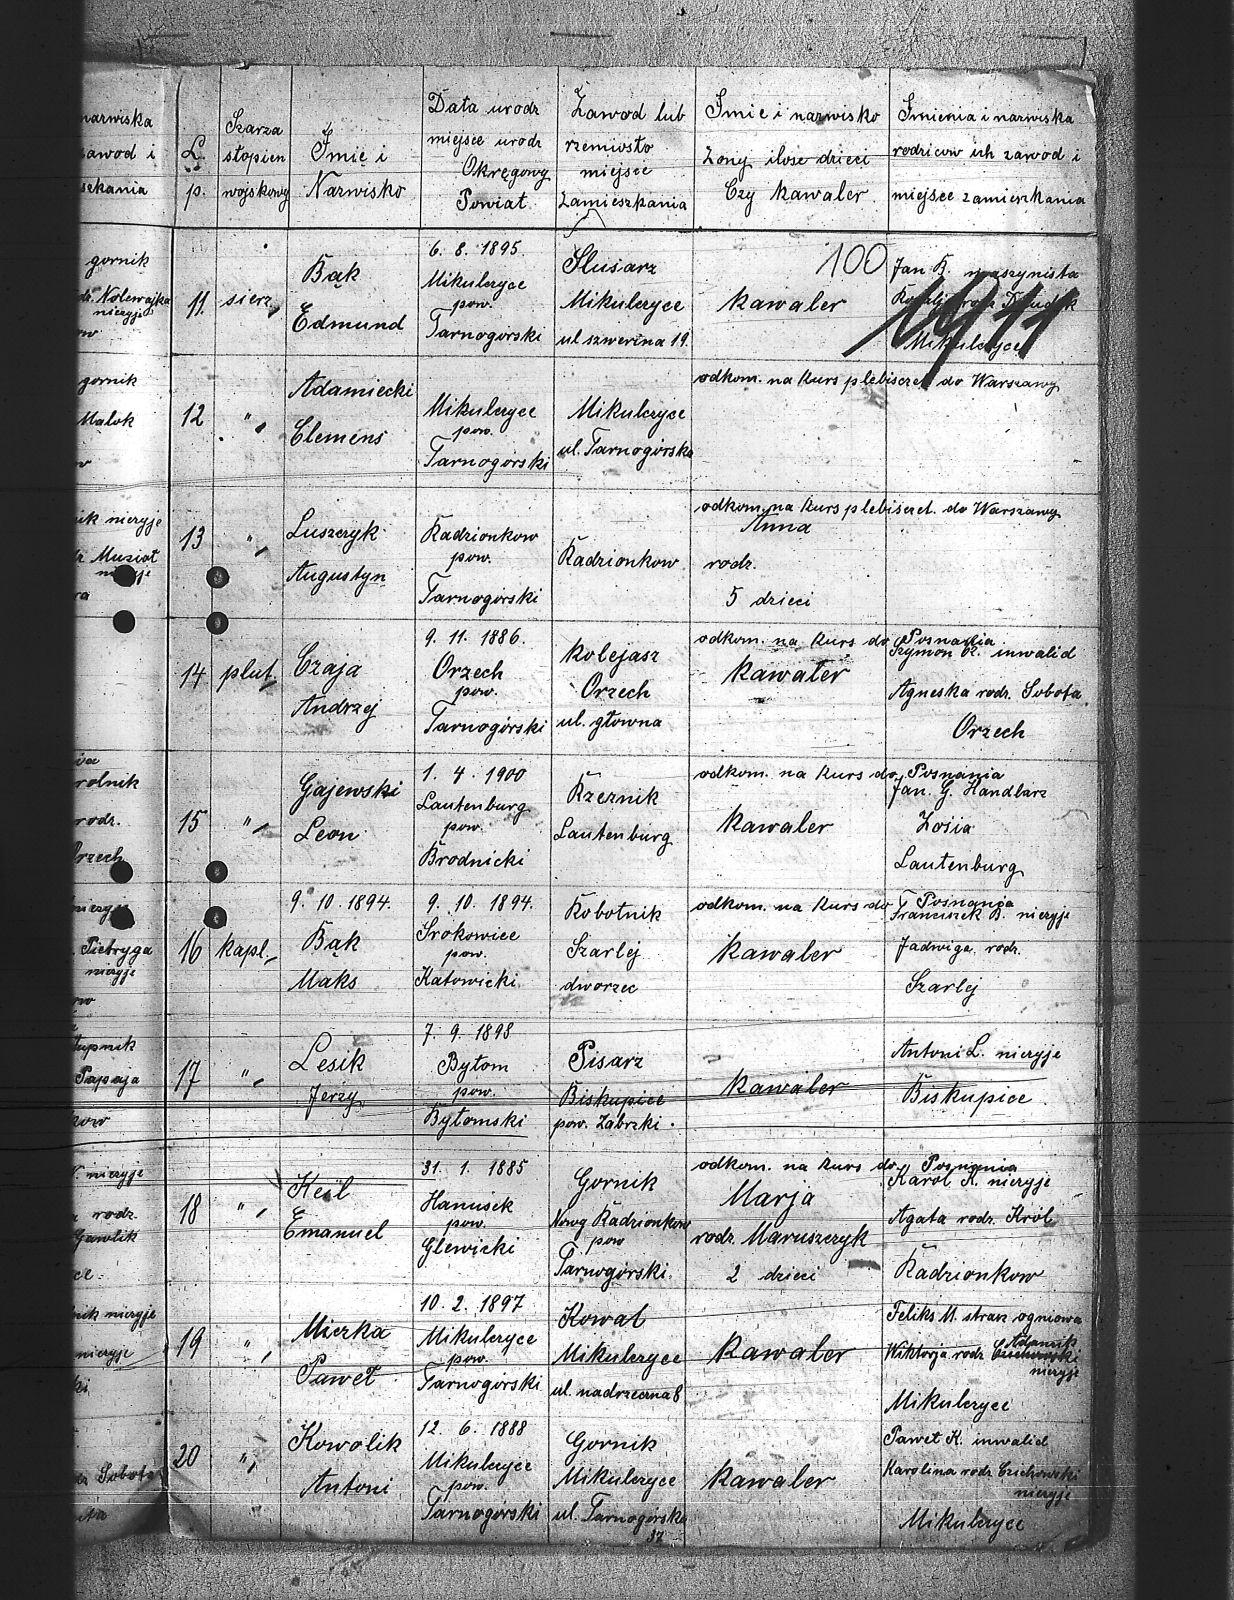 narwiska
zawod i
szkania
L.
p.
Szarza
stopien
wojskowy
Imie i
Narwisko
Data urodz
miejsce urodz
Okręgowy
Powiat.
Zawod lub
rzemiosto
miejsce
Zamieszkania
Imie i narwisko
Zony ilose dzieci
Czy kawaler
Imienia i narwiska
rodzicow ich zawod i
miejsce zamieszkania
gornik
dz. Nolewajka
niezyje
ow
11.
sierz.
Bąk
Edmund
6. 8. 1895.
Mikulczyce
pow.
Tarnogorski
Slusarz
Mikulczyce
ul szwerina 19.
kawaler
100
Jan B. maszynista
1911
Mikulczyce
gornik
Malok
12
"
Adamiecki
Clemens
Mikulczyce
pow.
Tarnogorski
Mikulczyce
ul. Tarnogorska
odkom. na kurs plebisczt do Warszawy
nik niezyje
dz Muziot
niezyje
ra
13
"
Luszczyk
Augustyn
Radzionkow
pow.
Tarnogorski
Radzionkow
odkom. na kurs plebisczt. do Warszawy
Anna
rodz.
5 dzieci
14
plut.
Czaja
Andrzej
9. 11. 1886.
Orzech
pow.
Tarnogorski
kolejasz
Orzech
ul. głowna
odkom. na kurs do Posnania
kawaler
Szymon Cz. inwalid
Agneska rodz. Sobota
Orzech
rolnik
rodz.
Orzech
15
"
Gajewski
Leon
1. 4. 1900
Lautenburg
pow.
Brodnicki
Rzeznik
Lautenburg
odkom. na kurs do Posnania
kawaler
Jan. G. Handlarz
Zosia
Lautenburg
niezyje
Pietryga
niezyje
ow
16
kapl.
9. 10. 1894.
Bąk
Maks
9. 10. 1894.
Srokowiec
pow.
Katowicki
Robotnik
Szarlej
dworzec
odkom. na kurs do Posnania
kawaler
Franciszek B. niezyje
Jadwiga rodz.
Szarlej
Papaja
kow
17
"
Lesik
Jerzy
7. 9. 1898
Bytom
pow.
Bytomski
Pisarz
Biskupice
pow. Zabrski.
kawaler
Antoni L. niezyje
Biskupice
niezyje
rodz.
Gawlik
ce.
18
"
Keil
Emanuel
31. 1. 1885
Hanusek
pow.
Glewicki
Gornik
Nowy Radzionkow
pow
Tarnogorski.
odkom. na kurs do Posnania
Marja
rodz. Maruszczyk
2 dzieci
Karol K. niezyje
Agata rodz. Król
Radzionkow
nik niezyje
niezyje
ki
19
"
Mierka
Paweł
10. 2. 1897
Mikulczyce
pow.
Tarnogorski
Kowal
Mikulczyce
ul. nadrzeczna 8
kawaler
Feliks M. straz ogniowa
Adamik
Wiktorja rodz Czichowski
niezyje
Mikulczyce
dz Sobota
20
"
Kowolik
Antoni
12. 6. 1888
Mikulczyce
pow.
Tarnogorski
Gornik
Mikulczyce
ul. Tarnogorska
37
kawaler
Paweł K. inwalid
Karolina rodz Czichowski
niezyje
Mikulczyce